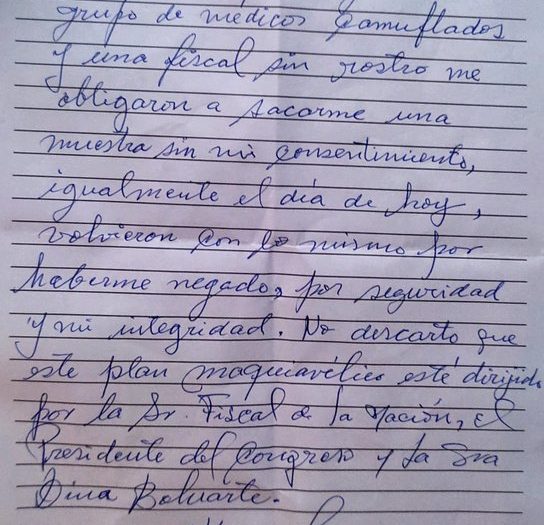 grupo de médicos camuflados
y una fiscal sin rostro me
obligaron a sacarme una
muestra sin mi consentimiento,
igualmente el día de hoy,
volvieron con lo mismo por
haberme negado, por seguridad
y mi integridad. No descarto que
este plan maquiavélico esté dirijido
por la Sr. Fiscal de la Nación, el
Presidente del Congreso y la Sra
Dina Boluarte.